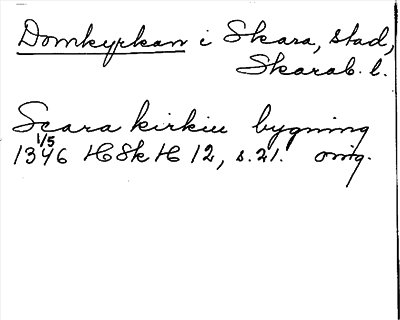 Domkyrkan i Skara, stad,
Skarab. l.
Scara kirkiu bygning
1346 1/5 HSkH 12, s. 21. orig.